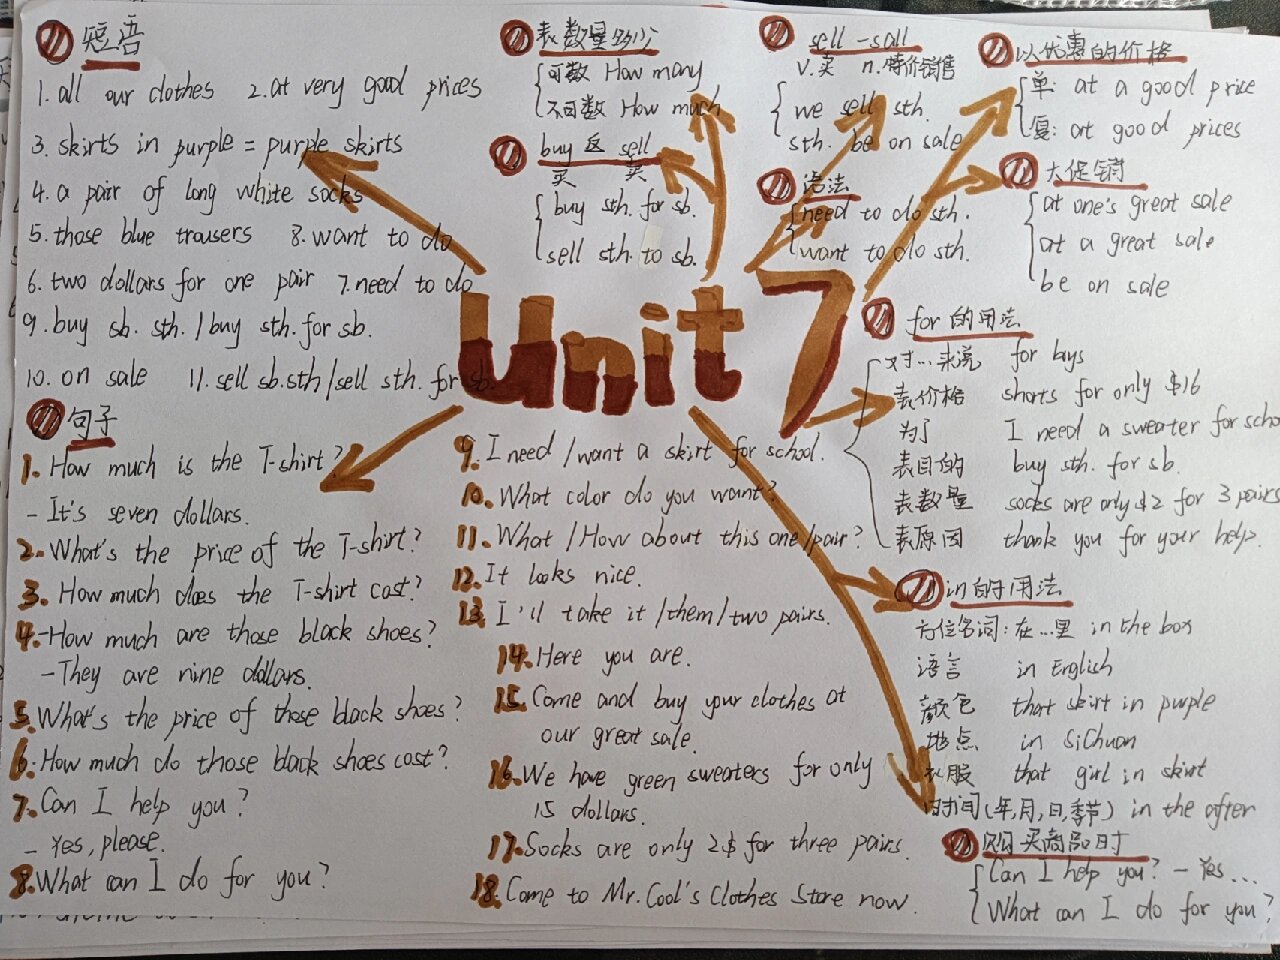 短语
1. all our clothes 2. at very good prices
3. skirts in purple = purple skirts
4. a pair of long white socks
5. those blue trousers 8. want to do
6. two dollars for one pair 7. need to do
9. buy sb. sth. / buy sth. for sb.
10. on sale 11. sell sb. sth / sell sth. for sb.
句子
1. How much is the T-shirt?
- It's seven dollars.
2. What's the price of the T-shirt?
3. How much does the T-shirt cost?
4. - How much are those black shoes?
- They are nine dollars.
5. What's the price of those black shoes?
6. How much do those black shoes cost?
7. Can I help you?
- Yes, please.
8. What can I do for you?
Unit 7
9. I need / want a skirt for school.
10. What color do you want?
11. What / How about this one / pair?
12. It looks nice.
13. I'll take it / them / two pairs.
14. Here you are.
15. Come and buy your clothes at
our great sale.
16. We have green sweaters for only
15 dollars.
17. Socks are only 2$ for three pairs.
18. Come to Mr. Cool's Clothes Store now.
表数量多少
可数 How many
不可数 How much
buy 反 sell
买 卖
buy sth. for sb.
sell sth. to sb.
sell - sall
v. 买 n. 特价销售
we sell sth.
sth. be on sale
语法
need to do sth.
want to do sth.
以优惠的价格
单: at a good price
复: at good prices
大促销
at one's great sale
at a great sale
be on sale
for 的用法
对...来说 for boys
表价格 shorts for only $16
为了 I need a sweater for scho
表目的 buy sth. for sb.
表数量 socks are only $2 for 3 pairs
表原因 thank you for your help.
in 的用法
方位名词: 在...里 in the box
语言 in English
颜色 that skirt in purple
地点 in SiChuan
衣服 that girl in skirt
时间 (年,月,日,季节) in the after
购买商品时
Can I help you? - Yes...
What can I do for you?